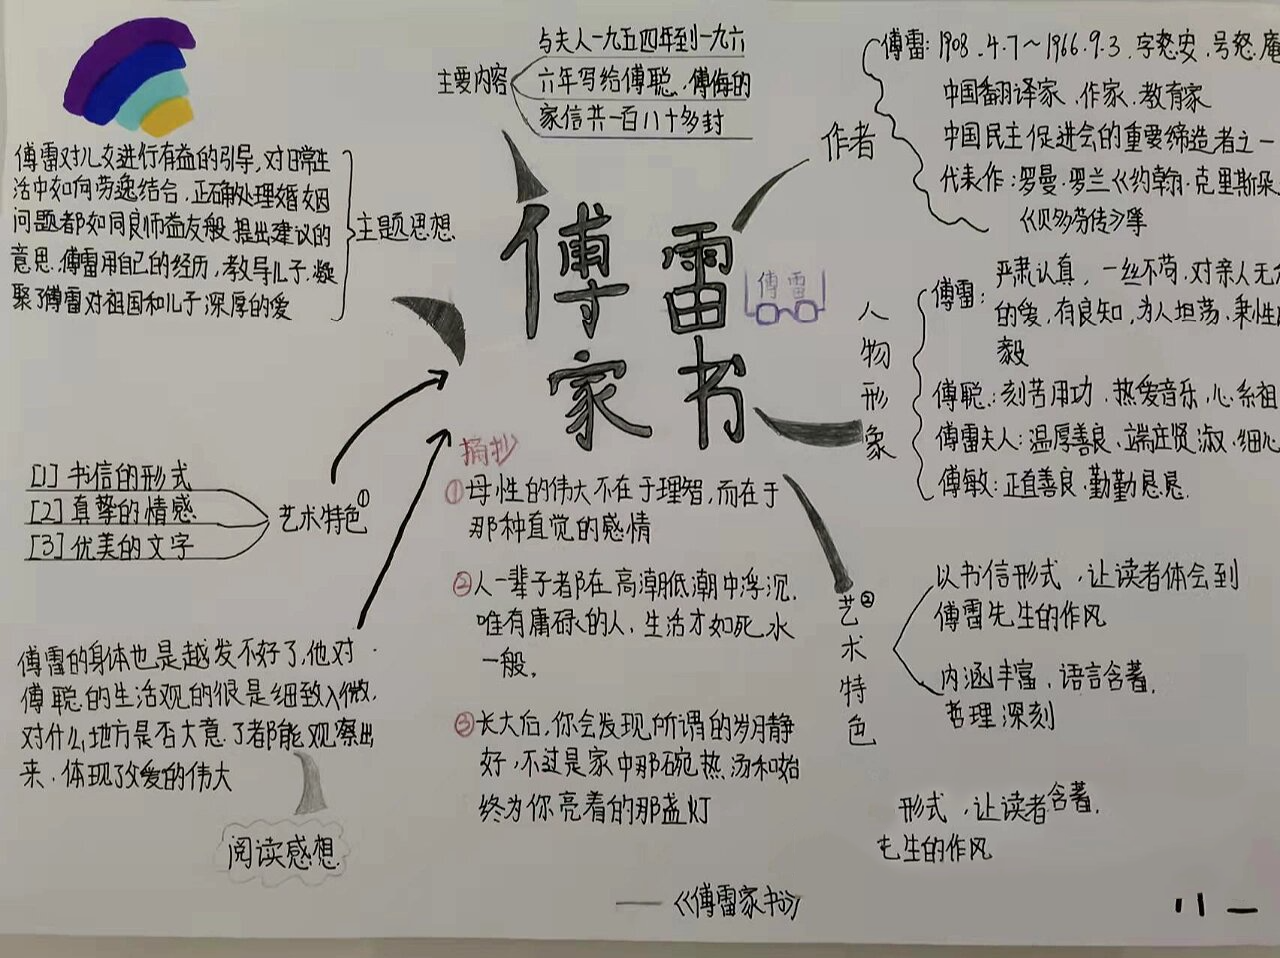 傅雷家书
主要内容
与夫人一九五四年到一九六
六年写给傅聪、傅侮的
家信共一百八十多封
作者
傅雷：1908.4.7～1966.9.3，字怒安，号怒庵
中国翻译家、作家、教育家
中国民主促进会的重要缔造者之一
代表作：罗曼·罗兰《约翰·克里斯朵
《贝多芬传》等
傅雷
人物形象
傅雷：
严肃认真，一丝不苟，对亲人无
的爱，有良知，为人坦荡，秉性
毅
傅聪：刻苦用功，热爱音乐，心系祖
傅雷夫人：温厚善良、端庄贤淑，细心
傅敏：正直善良、勤勤恳恳.
艺术特色②
以书信形式，让读者体会到
傅雷先生的作风
内涵丰富，语言含蓄，
哲理深刻
形式，让读者含蓄，
生的作风
主题思想
傅雷对儿女进行有益的引导，对日常生
活中如何劳逸结合，正确处理婚姻
问题都如同良师益友般提出建议的
意思.傅雷用自己的经历，教导儿子，凝
聚了傅雷对祖国和儿子深厚的爱
艺术特色①
[1]书信的形式
[2]真挚的情感
[3]优美的文字
傅雷的身体也是越发不好了，他对
傅聪的生活观的很是细致入微，
对什么地方是否大意了都能观察出
来，体现了父爱的伟大
阅读感想
摘抄
①母性的伟大不在于理智，而在于
那种直觉的感情
②人一辈子都在高潮低潮中浮沉，
唯有庸碌的人，生活才如死水
一般。
③长大后，你会发现所谓的岁月静
好，不过是家中那碗热汤和始
终为你亮着的那盏灯
——《傅雷家书》